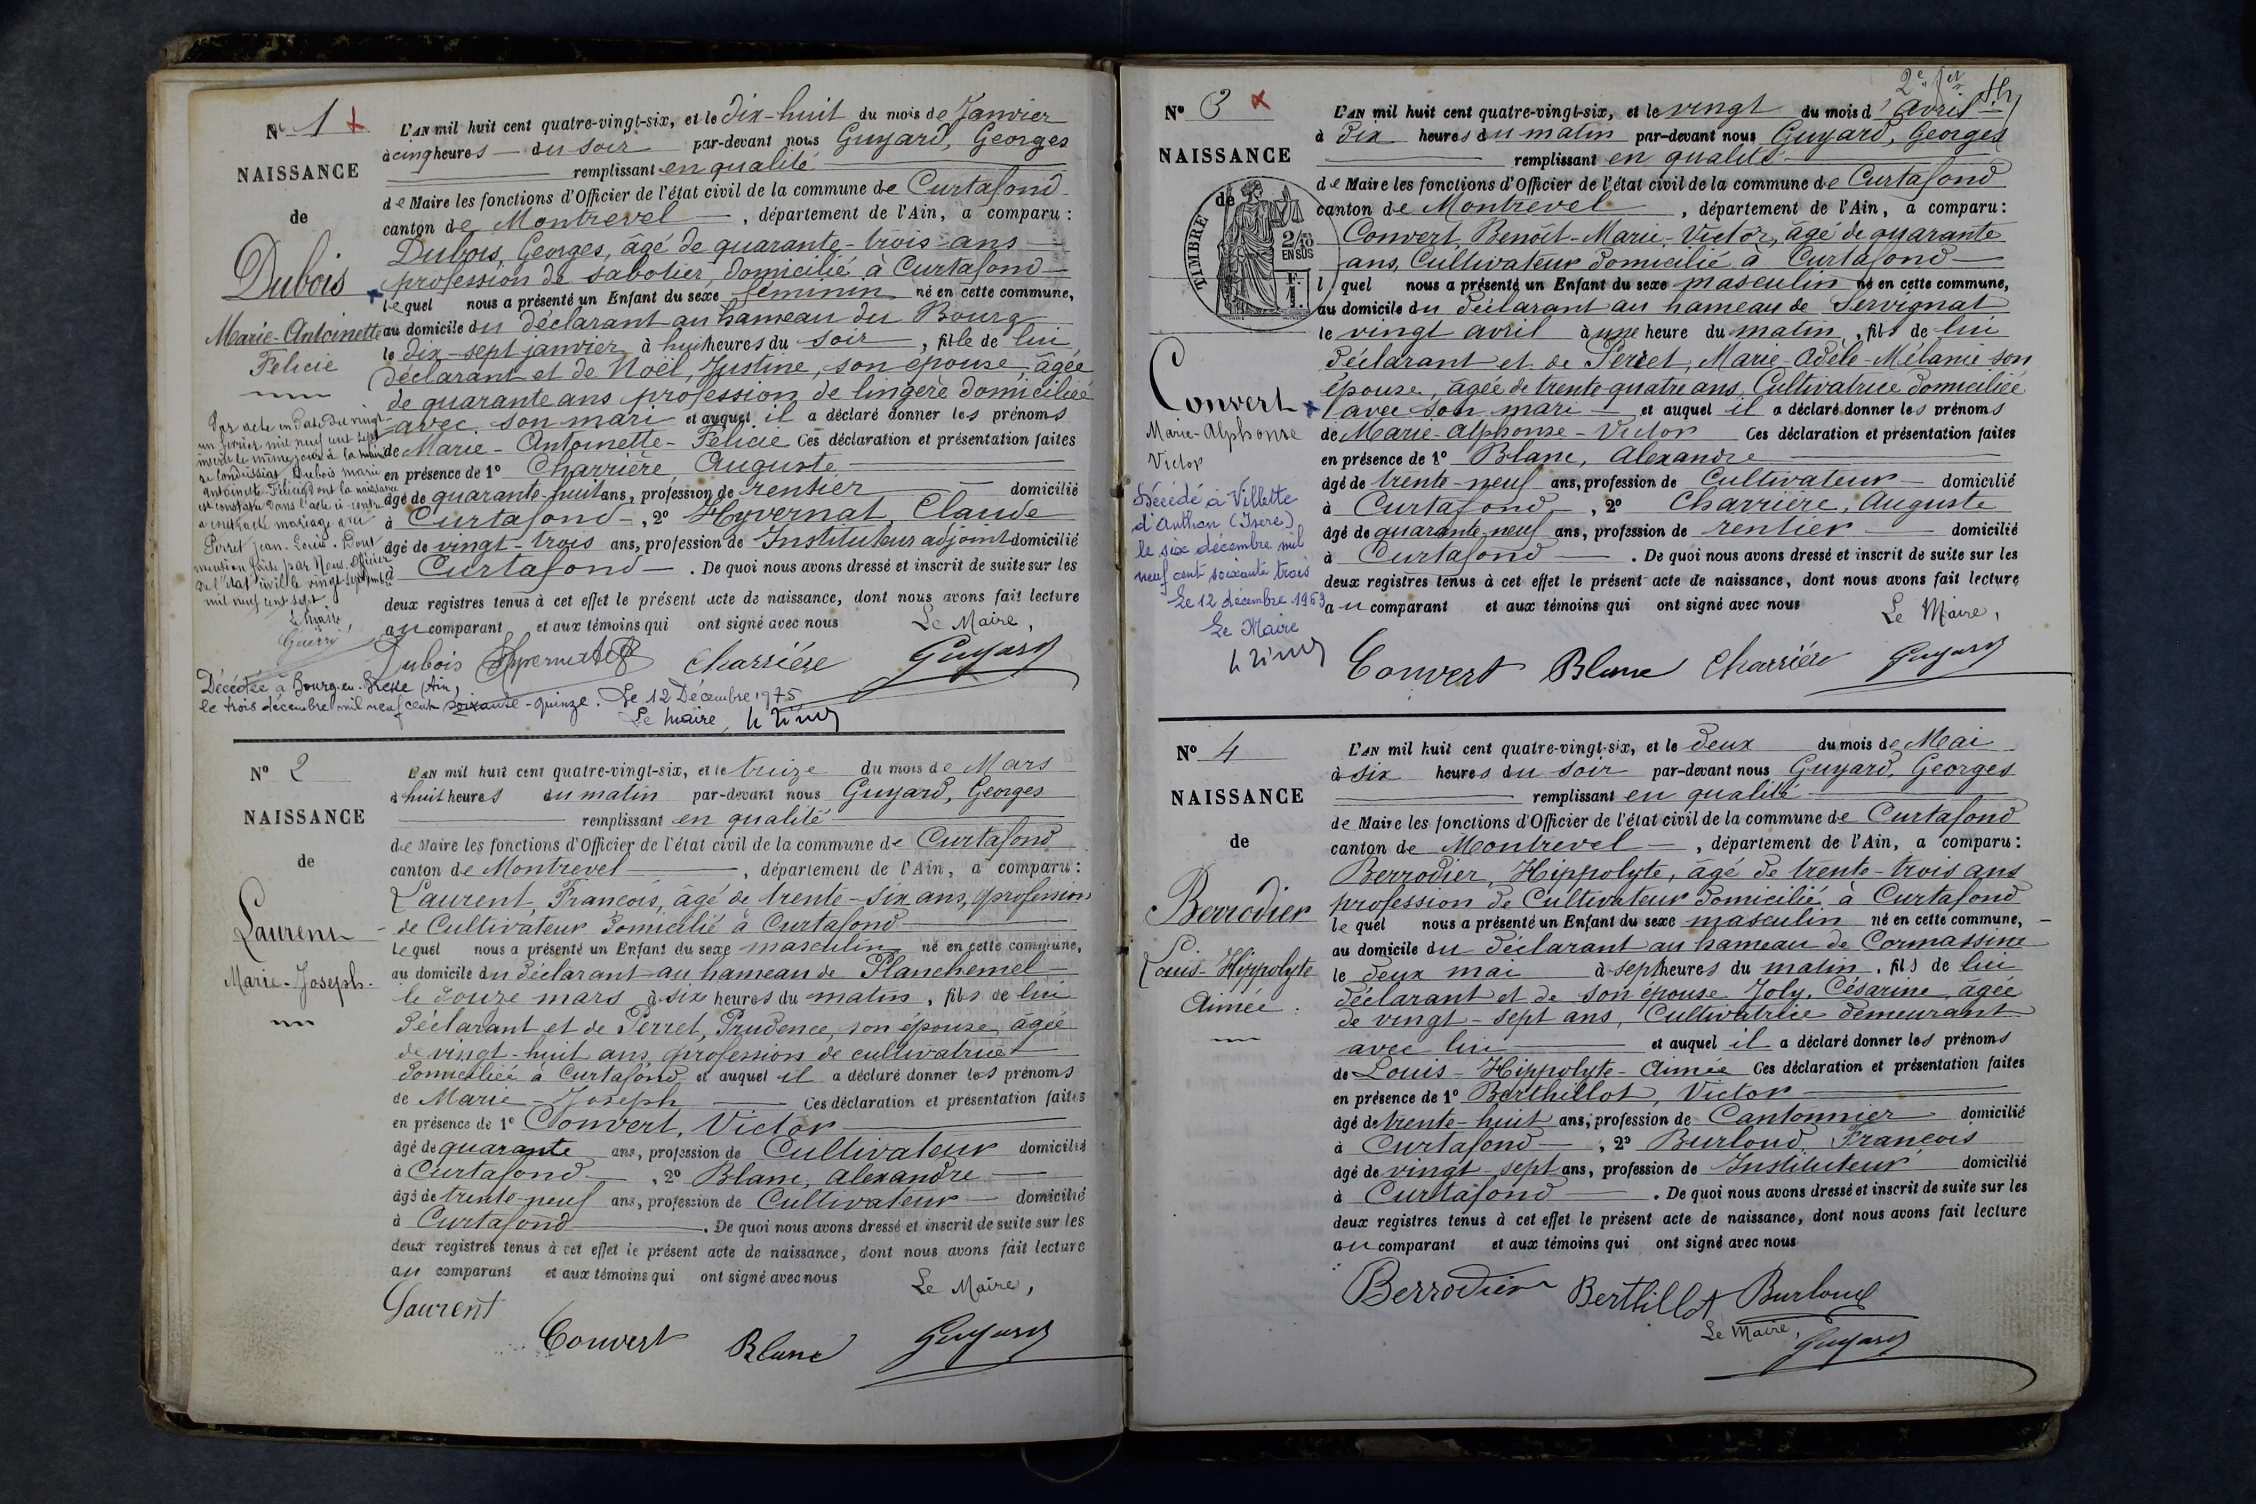 Nº 1
NAISSANCE
de
Dubois
Marie-Antoinette
Felicie
L'AN mil huit cent quatre-vingt-six, et le dix-huit du mois de Janvier
à cinq heures du soir par-devant nous Guyard, Georges
remplissant en qualité
de Maire les fonctions d'Officier de l'état civil de la commune de Curtafond
canton de Montrevel, département de l'Ain, a comparu :
Dubois, Georges, âgé de quarante-trois ans
profession de sabotier, domicilié à Curtafond
lequel nous a présenté un Enfant du sexe féminin né en cette commune,
au domicile du déclarant au hameau du Bourg
le dix-sept janvier à huit heures du soir, fille de lui
déclarant et de Noël, Justine, son épouse, âgée
de quarante ans profession de lingère domiciliée
avec son mari et auquel il a déclaré donner les prénoms
de Marie-Antoinette-Félicie Ces déclaration et présentation faites
en présence de 1º Charrière Auguste
âgé de quarante-huit ans, profession de rentier domicilié
à Curtafond, 2º Hyvernat, Claude
âgé de vingt-trois ans, profession de Instituteur adjoint domicilié
à Curtafond. De quoi nous avons dressé et inscrit de suite sur les
deux registres tenus à cet effet le présent acte de naissance, dont nous avons fait lecture
au comparant et aux témoins qui ont signé avec nous Le Maire,
Dubois Hyvernat Charrière Guyard
Par acte en date du vingt
un février mil neuf cent sept
inscrit le même jour à la mairie
de Condeissiat Dubois Marie
Antoinette-Félicie dont la naissance
est constatée dans l'acte ci-contre
a contracté mariage avec
Perret Jean-Louis. Dont
mention faite par Nous, Officier
de l'état civil le vingt sept
mil neuf cent sept
Le Maire,
Décédée à Bourg-en-Bresse (Ain)
le trois décembre mil neuf cent soixante-quinze. Le 12 Décembre 1975
Le Maire,
Nº 2
NAISSANCE
de
Laurent
Marie-Joseph.
L'AN mil huit cent quatre-vingt-six, et le treize du mois de Mars
à huit heures du matin par-devant nous Guyard, Georges
remplissant en qualité
de Maire les fonctions d'Officier de l'état civil de la commune de Curtafond
canton de Montrevel, département de l'Ain, a comparu :
Laurent, François, âgé de trente-six ans, profession
de Cultivateur domicilié à Curtafond
lequel nous a présenté un Enfant du sexe masculin né en cette commune,
au domicile du déclarant au hameau de Planchemel
le douze mars à six heures du matin, fils de lui
déclarant et de Perret, Prudence, son épouse, âgée
de vingt-huit ans, profession de cultivatrice
domiciliée à Curtafond et auquel il a déclaré donner les prénoms
de Marie-Joseph Ces déclaration et présentation faites
en présence de 1º Convert, Victor
âgé de quarante ans, profession de Cultivateur domicilié
à Curtafond, 2º Blanc, Alexandre
âgé de trente-neuf ans, profession de Cultivateur domicilié
à Curtafond. De quoi nous avons dressé et inscrit de suite sur les
deux registres tenus à cet effet le présent acte de naissance, dont nous avons fait lecture
au comparant et aux témoins qui ont signé avec nous
Le Maire,
Laurent
Convert Blanc Guyard
2e fet
Nº 3
NAISSANCE
de
TIMBRE
2/10
EN SUS
Convert
Marie-Alphonse
Victor
L'AN mil huit cent quatre-vingt-six, et le vingt du mois d'avril
à dix heures du matin par-devant nous Guyard, Georges
remplissant en qualité
de Maire les fonctions d'Officier de l'état civil de la commune de Curtafond
canton de Montrevel, département de l'Ain, a comparu :
Convert, Benoît-Marie-Victor, âgé de quarante
ans, Cultivateur domicilié à Curtafond
l quel nous a présenté un Enfant du sexe masculin né en cette commune,
au domicile du déclarant au hameau de Servignat
le vingt avril à une heure du matin, fils de lui
déclarant et de Perret, Marie-Adèle-Mélanie son
épouse, âgée de trente quatre ans, Cultivatrice domiciliée
avec son mari et auquel il a déclaré donner les prénoms
de Marie-Alphonse-Victor Ces déclaration et présentation faites
en présence de 1º Blanc, Alexandre
âgé de trente-neuf ans, profession de Cultivateur domicilié
à Curtafond, 2º Charrière, Auguste
âgé de quarante-neuf ans, profession de rentier domicilié
à Curtafond. De quoi nous avons dressé et inscrit de suite sur les
deux registres tenus à cet effet le présent acte de naissance, dont nous avons fait lecture
au comparant et aux témoins qui ont signé avec nous Le Maire,
Convert Blanc Charrière Guyard
Décédé à Villette
d'Anthon (Isère)
le six décembre mil
neuf cent soixante trois
Le 12 décembre 1963
Le Maire
Nº 4
NAISSANCE
de
Berrodier
Louis-Hippolyte
Aimée.
L'AN mil huit cent quatre-vingt-six, et le deux du mois de Mai
à six heures du soir par-devant nous Guyard, Georges
remplissant en qualité
de Maire les fonctions d'Officier de l'état civil de la commune de Curtafond
canton de Montrevel, département de l'Ain, a comparu :
Berrodier, Hippolyte, âgé de trente-trois ans
profession de Cultivateur domicilié à Curtafond
lequel nous a présenté un Enfant du sexe masculin né en cette commune,
au domicile du déclarant au hameau de Cormassine
le deux mai à sept heures du matin, fils de lui
déclarant et de son épouse Joly, Césarine, âgée
de vingt-sept ans, Cultivatrice demeurant
avec lui et auquel il a déclaré donner les prénoms
de Louis-Hippolyte-Aimée Ces déclaration et présentation faites
en présence de 1º Berthillot, Victor
âgé de trente-huit ans, profession de Cantonnier domicilié
à Curtafond, 2º Burloud François
âgé de vingt-sept ans, profession de Instituteur domicilié
à Curtafond. De quoi nous avons dressé et inscrit de suite sur les
deux registres tenus à cet effet le présent acte de naissance, dont nous avons fait lecture
au comparant et aux témoins qui ont signé avec nous
Berrodier Berthillot Burloud
Le Maire,
Guyard